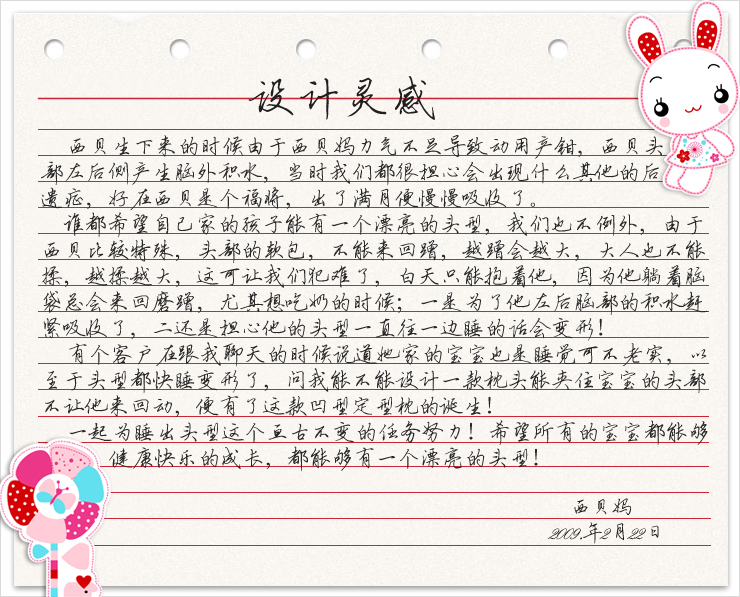 设计灵感
西贝生下来的时候由于西贝妈力气不足导致动用产钳，西贝头
部左后侧产生脑外积水，当时我们都很担心会出现什么其他的后
遗症，好在西贝是个福将，出了满月便慢慢吸收了。
谁都希望自己家的孩子能有一个漂亮的头型，我们也不例外，由于
西贝比较特殊，头部的软包，不能来回蹭，越蹭会越大，大人也不能
揉，越揉越大，这可让我们犯难了，白天只能抱着他，因为他躺着脑
袋总会来回磨蹭，尤其想吃奶的时候；一是为了他左后脑部的积水赶
紧吸收了，二还是担心他的头型一直往一边睡的话会变形！
有个客户在跟我聊天的时候说道她家的宝宝也是睡觉可不老实，以
至于头型都快睡变形了，问我能不能设计一款枕头能夹住宝宝的头部
不让他来回动，便有了这款凹型定型枕的诞生！
一起为睡出头型这个亘古不变的任务努力！希望所有的宝宝都能够
健康快乐的成长，都能够有一个漂亮的头型！
西贝妈
2009.年2月22日